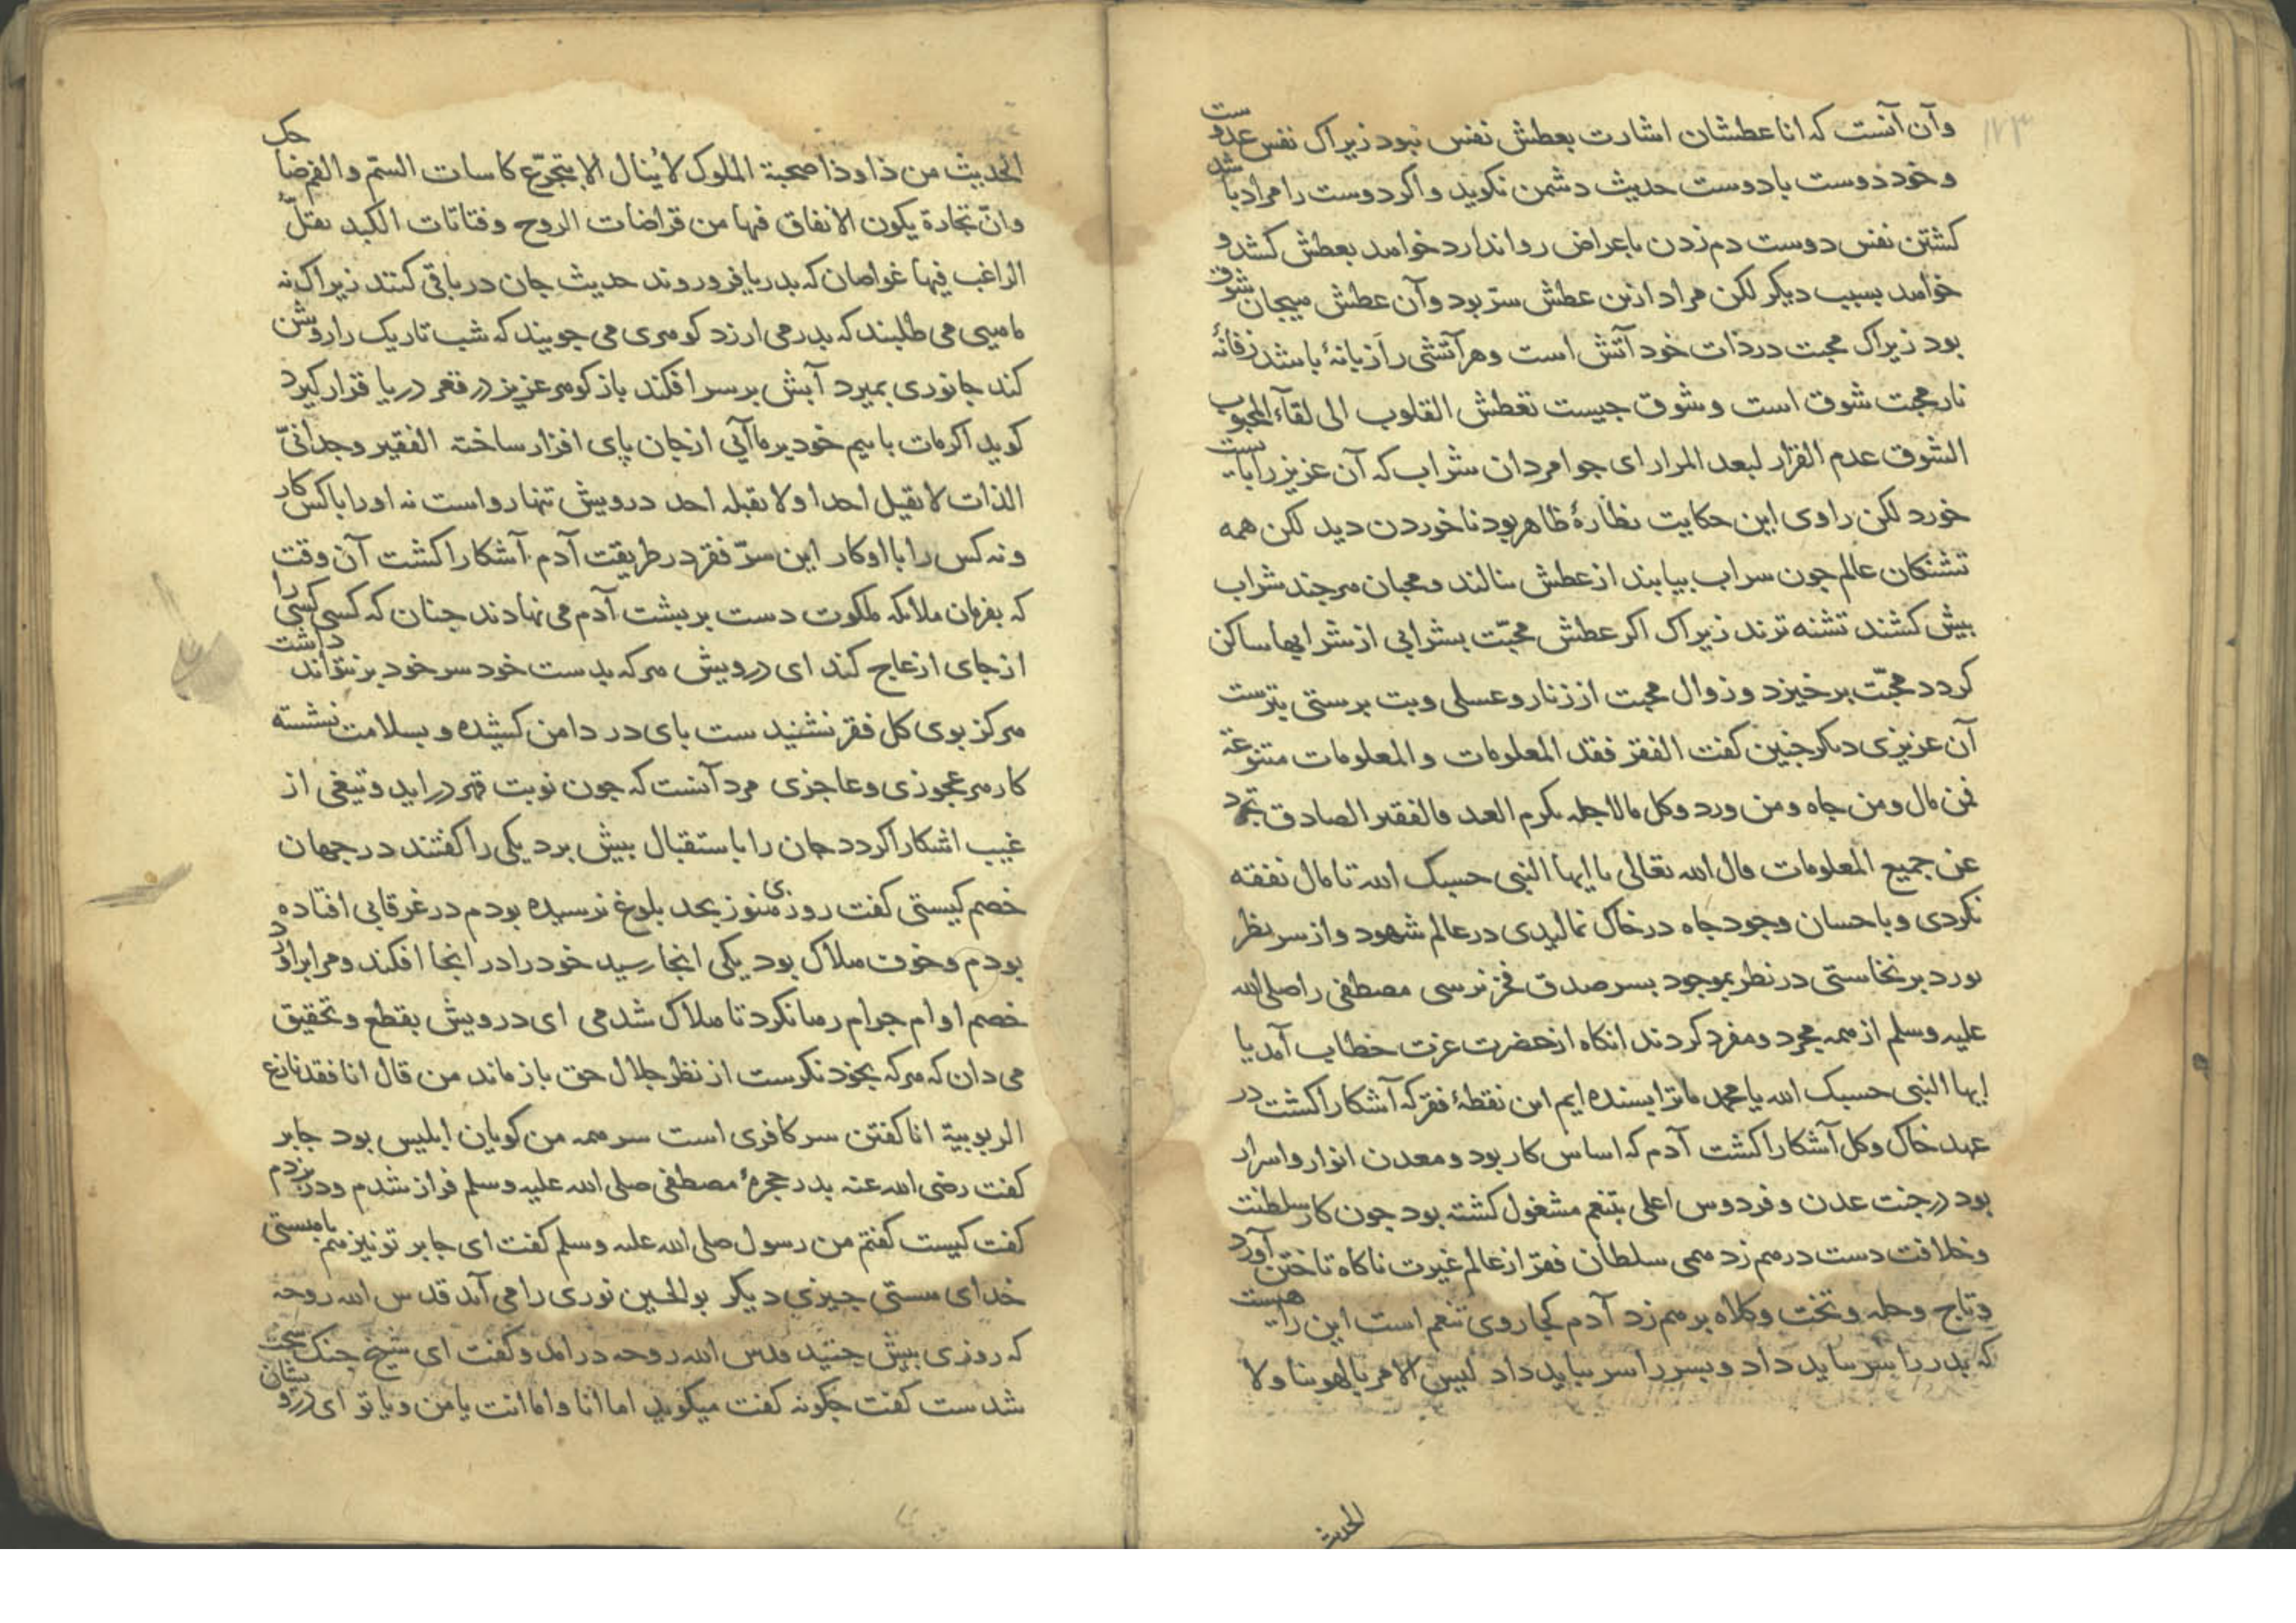 ۱۷۳
وآن آنست که انا عطشان اشارت بعطش نفس نبود زیراک نفس عدوست
و خود دوست با دوست حدیث دشمن نکوید و اکر دوست را مراد باشد
کشتن نفس دوست دم زدن باعراض روا ندارد خواهد بعطش کشد و
خواهد بسبب دیکر لکن مراد ازین عطش سرّ بود وآن عطش هیجان شوق
بود زیراک محبت در ذات خود آتش است وهر آتشی را زبانهٔ باشد زفانهٔ
نار محبت شوق است و شوق جیست تعطش القلوب الی لقآء المحبوب
الشوق عدم القرار لبعد المرار ای جوامردان شراب که آن عزیز را بایست
خورد لکن راوی این حکایت نظارهٔ ظاهر بود ناخوردن دید لکن همه
تشنکان عالم جون سراب بیابند از عطش بنالند و محبان هر جند شراب
بیش کشند تشنه ترند زیراک اکر عطش محبّت بشرابی از شرابها ساکن
کردد محبّت برخیزد و زوال محبت از زنار و عسلی و بت برستی بترست
آن عزیزی دیکر جنین کفت الفقر فقد المعلومات و المعلومات متنوعة
فمن مال ومن جاه ومن ورد وکل مالاجله یکرم العبد فالفقیر الصادق تجرد
عن جمیع المعلومات قال الله تعالی یا ایها النبی حسبک الله تا مال نفقته
نکردی و باحسان وجود جاه در خاک نمالیدی در عالم شهود واز سر نظر
بورد برنخاستی در نظر بموجود بسر صدق فخر نرسی مصطفی را صلی الله
علیه وسلم از همه مجرد و مفرد کردند انکاه از حضرت عزت خطاب آمد یا
ایها النبی حسبک الله یا محمد ما ترا بسنده ایم این نقطهٔ فقر که آشکارا کشت در
عهد خاک وکل آشکارا کشت آدم که اساس کار بود و معدن انوار و اسرار
بود در جنت عدن و فردوس اعلی بتنعم مشغول کشته بود جون کار سلطنت
و خلافت دست درهم زد همی سلطان فقر از عالم غیرت ناکاه تاختن آورد
و تاج و حله و تخت و کلاه برهم زد آدم کجا روی تنعم است این راهیست
که بدر را سر بباید داد و بسر را سر بباید داد لیس الامر بالهوینا ولا
الحدیث
الحدیث من ذا و ذا صحبة الملوک لا ینال الا بتجرّع کاسات السّم والفم ضاحک
وانّ تجارة یکون الانفاق فیها من قراضات الروح وفتاتات الکبد یقلّ
الراغب فیها غواصان که بدریا فرو روند حدیث جان در باقی کنند زیراک نه
ماهیی می طلبند که بدرمی ارزد کوهری می جویند که شب تاریک را روشن
کند جانوری بمیرد آبش بر سر افکند باز کوهر عزیز در قعر دریا قرار کیرد
کوید اکر مات باهیم خود بر ما آیی از جان پای افزار ساخته الفقیر وحدانیّ
الذات لا یقبل احدا ولا یقبله احد درویش تنها رواست نه اورا با کس کار
و نه کس را با او کار این سرّ فقر در طریقت آدم آشکارا کشت آن وقت
که بفرمان ملائکه ملکوت دست بر بیشت آدم می نهادند جنان که کسی کسی را
از جای ازعاج کند ای درویش هر که بدست خود سر خود بر نتواند داشت
هرکز بوی کل فقر نشنیدست بای در دامن کشیده و بسلامت نشسته
کار هر عجوزی وعاجزی مرد آنست که جون نوبت قهر دراید وتیغی از
غیب اشکارا کردد جان را باستقبال بیش برد یکی را کفتند در جهان
خصم کیستی کفت روزی هنوز بحد بلوغ نرسیده بودم در غرقابی افتاده
بودم و خوف هلاک بود یکی انجا رسید خود را در انجا افکند و مرا براورد
خصم اوام جرام رها نکرد تا هلاک شدمی ای درویش بقطع و تحقیق
می دان که هر که بخود نکرست از نظر جلال حق باز ماند من قال انا فقد نازع
الربوبیة انا کفتن سر کافری است سر همه من کویان ابلیس بود جابر
کفت رضی الله عنه بدر حجرهٔ مصطفی صلی الله علیه وسلم فراز شدم و در بزدم
کفت کیست کفتم من رسول صلی الله علیه وسلم کفت ای جابر تو نیز هم با هستی
خدای هستی جیزی دیکر بو الحسین نوری را می آید قدس الله روحه
که روزی بیش جنید قدس الله روحه درامد و کفت ای شیخ جنک سخت
شدست کفت جکونه کفت میکوید اما انا واما انت یا من و یا تو ای درویشان